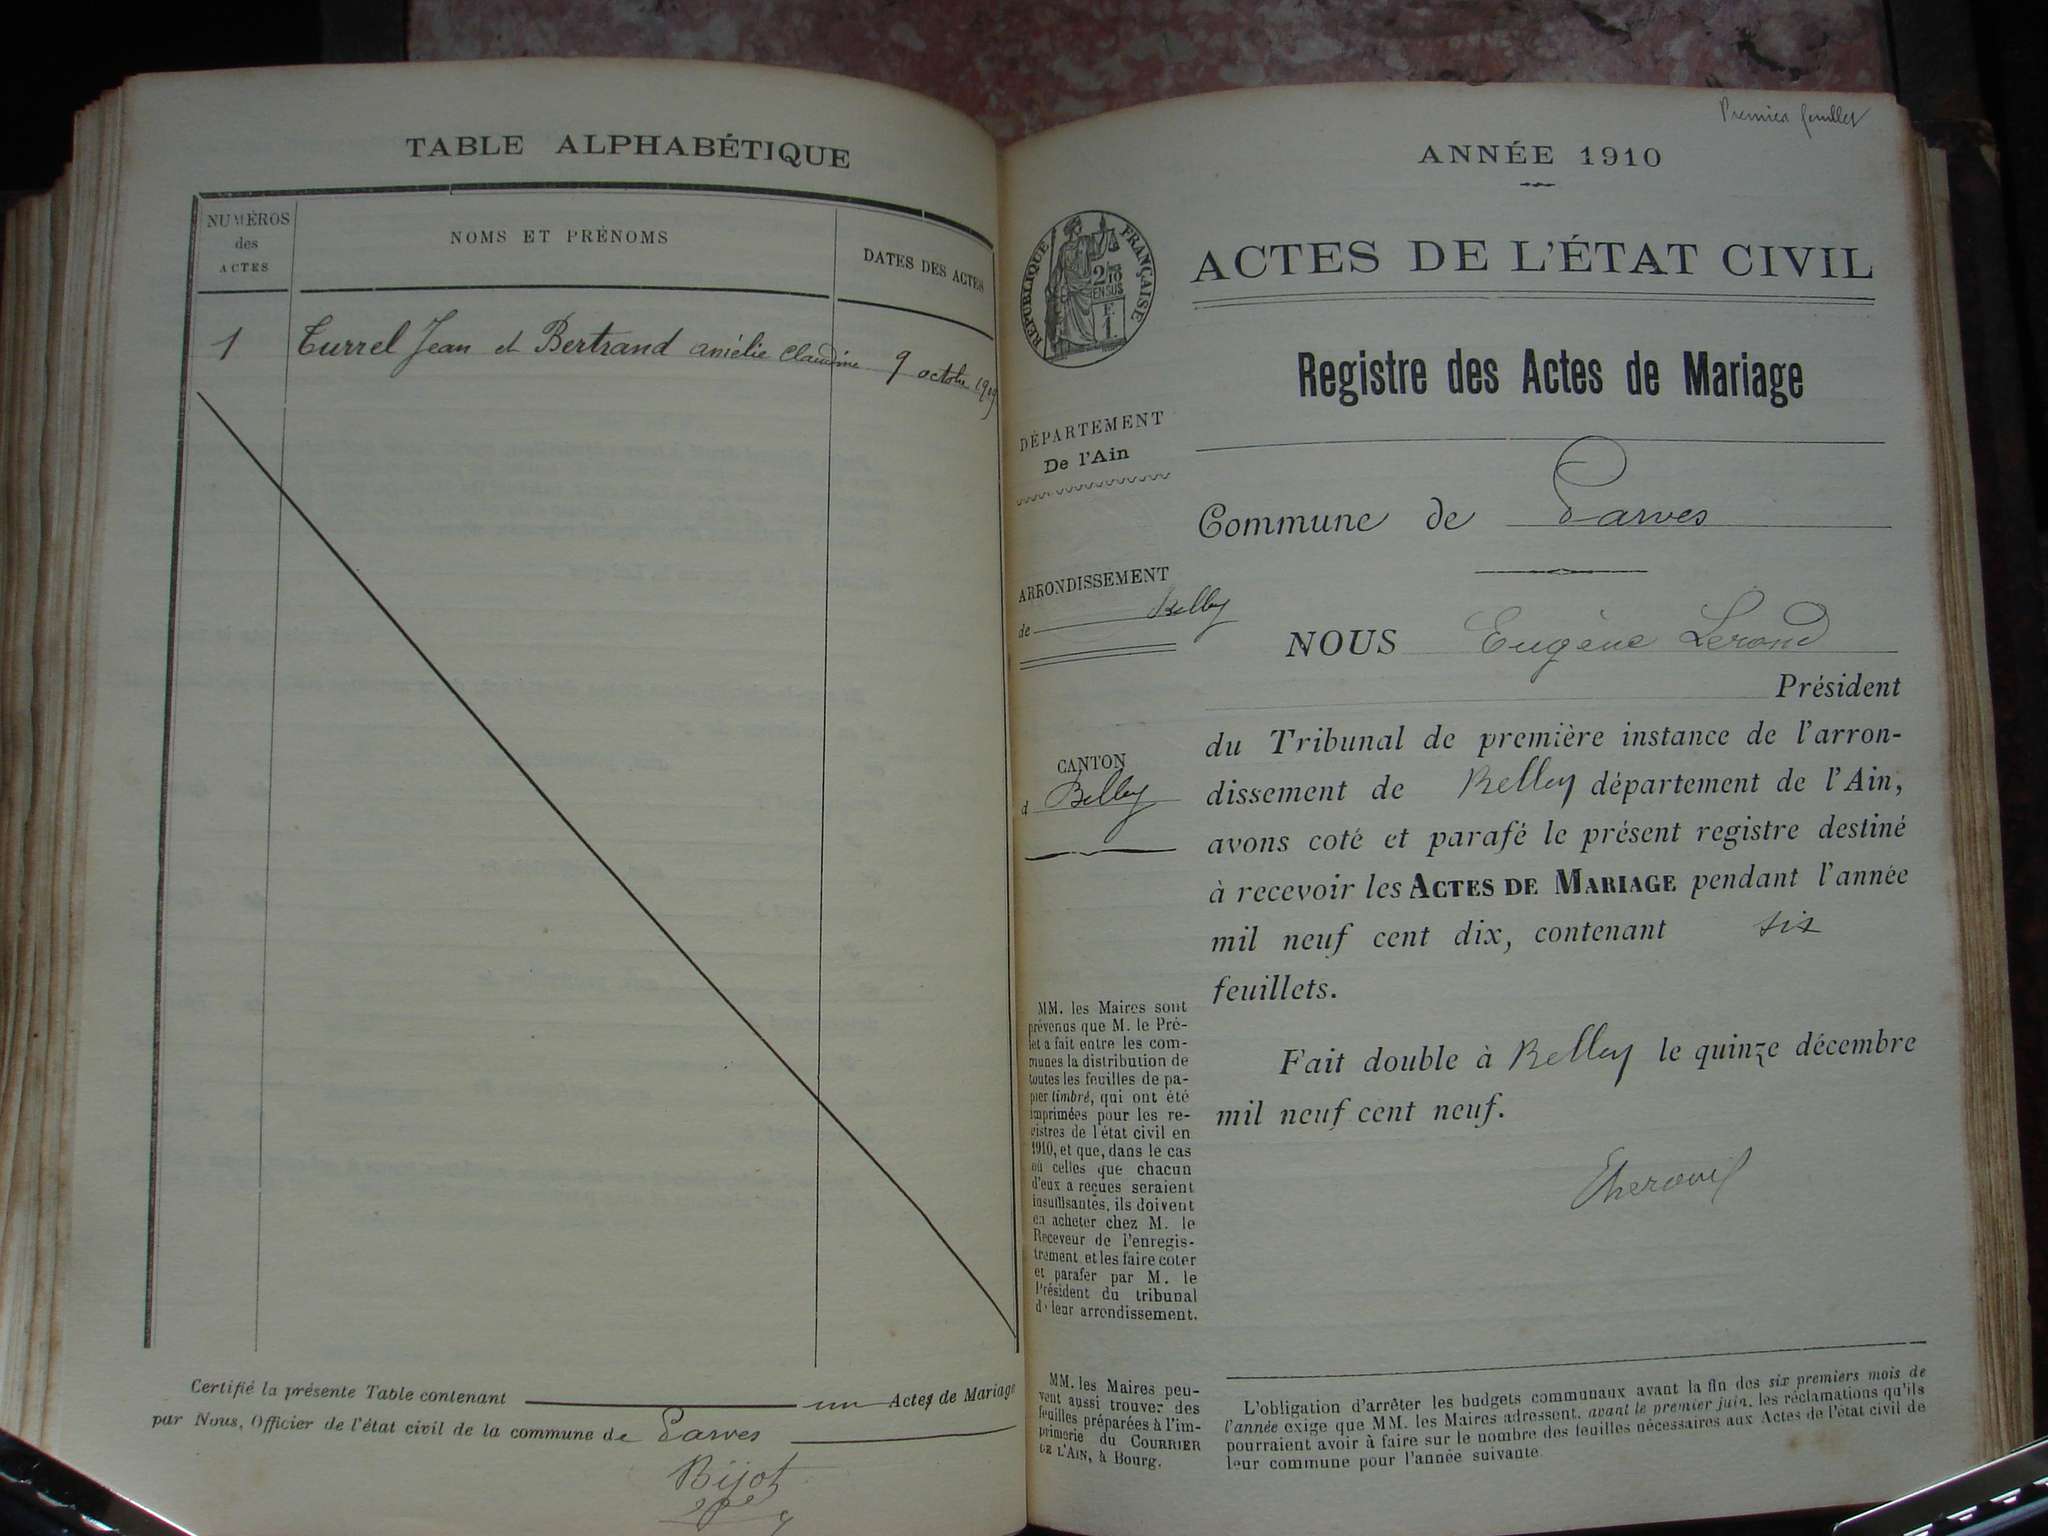 TABLE ALPHABÉTIQUE
NUMÉROS
des
ACTES
NOMS ET PRÉNOMS
DATES DES ACTES
1 Turrel Jean et Bertrand amélie Claudine 9 octobre 1909
Certifié la présente Table contenant un Actes de Mariage
par Nous, Officier de l'état civil de la commune de Parves
Bijot
Premier feuillet
ANNÉE 1910
RÉPUBLIQUE FRANÇAISE
2/10
EN SUS
F.
1.
ACTES DE L'ÉTAT CIVIL
Registre des Actes de Mariage
DÉPARTEMENT
De l'Ain
Commune de Parves
ARRONDISSEMENT
de Belley
NOUS Eugène Lerond
Président
CANTON
d Belley
du Tribunal de première instance de l'arron-
dissement de Belley département de l'Ain,
avons coté et parafé le présent registre destiné
à recevoir les ACTES DE MARIAGE pendant l'année
mil neuf cent dix, contenant six
feuillets.
Fait double à Belley le quinze décembre
mil neuf cent neuf.
MM. les Maires sont
prévenus que M. le Pré-
fet a fait entre les com-
munes la distribution de
toutes les feuilles de pa-
pier timbré, qui ont été
imprimées pour les re-
gistres de l'état civil en
1910, et que, dans le cas
où celles que chacun
d'eux a reçues seraient
insuffisantes, ils doivent
en acheter chez M. le
Receveur de l'enregis-
trement et les faire coter
et parafer par M. le
Président du tribunal
de leur arrondissement.
MM. les Maires peu-
vent aussi trouver des
feuilles préparées à l'im-
primerie du COURRIER
DE L'AIN, à Bourg.
L'obligation d'arrêter les budgets communaux avant la fin des six premiers mois de
l'année exige que MM. les Maires adressent, avant le premier juin, les réclamations qu'ils
pourraient avoir à faire sur le nombre des feuilles nécessaires aux Actes de l'état civil de
leur commune pour l'année suivante.